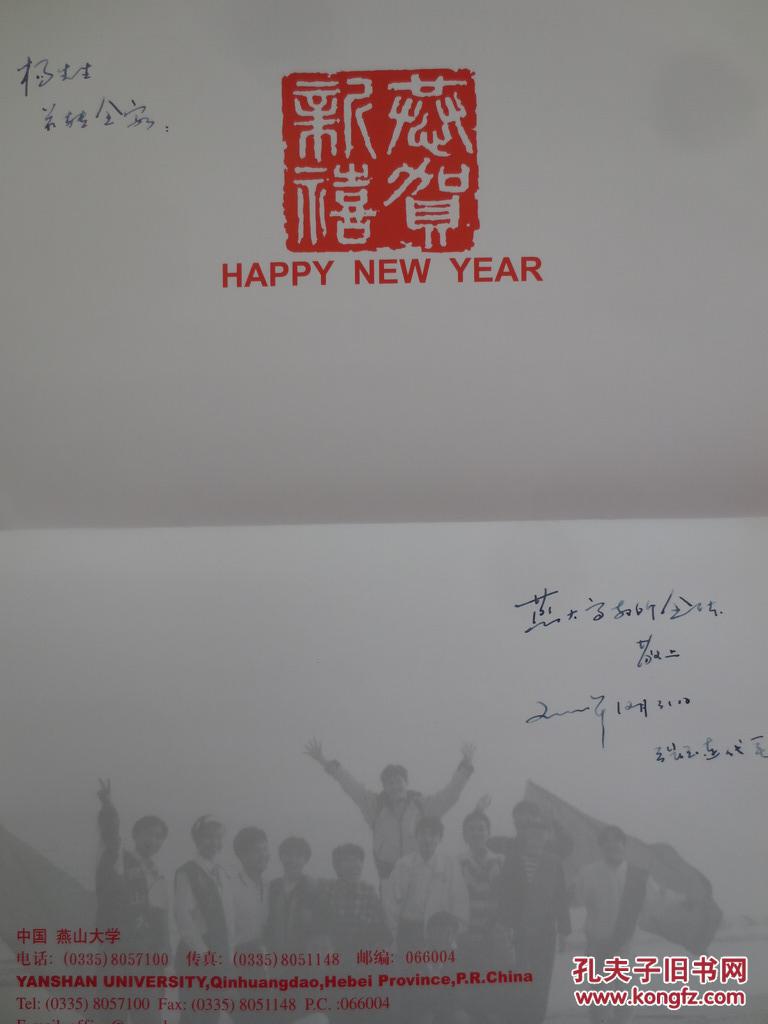 杨先生
并转全家：
恭贺
新禧
HAPPY NEW YEAR
燕大高教所全体
敬上
2000年12月31日
中国 燕山大学
电话: (0335)8057100 传真: (0335)8051148 邮编: 066004
YANSHAN UNIVERSITY,Qinhuangdao,Hebei Province,P.R.China
Tel: (0335) 8057100 Fax: (0335) 8051148 P.C. :066004
孔夫子旧书网
www.kongfz.com